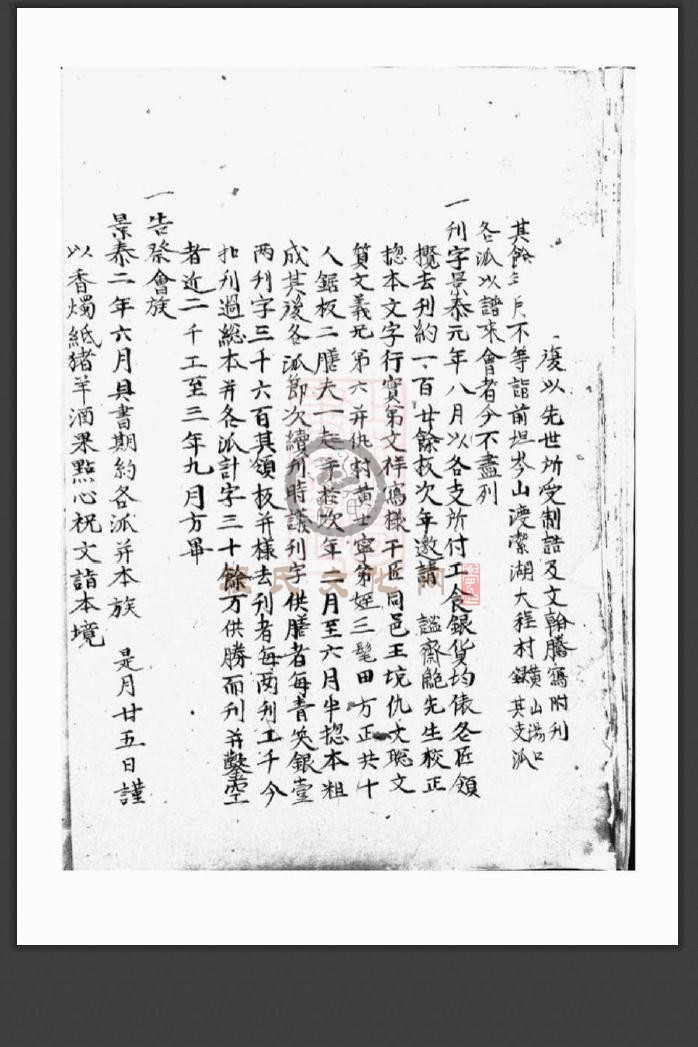 復以先世所受制誥及文翰騰寫附刊
其餘 不等詣前坦岑山渡潔湖大程村 黄山湯口其支派
各派以譜來會者今不盡列
一刊字景泰元年八月以各支所付工食銀貨均俵各匠領
攬去刊約一百廿餘板次年邀請 謚齋鮑先生校正
揔本文字行實第文祥寫樣干匠同邑王境仇文聡文
質文義 第六并仇村黄士寜第姪三髦田方正共十
人鋸板二膳夫一起 於次年二月至六月半揔本粗
成其後各派節次續刊時議刊字供膳者每青 銀壹
两刊字三千六百其領板并樣去刊者每两刊工千今
扣刊過総本并各派計字三十餘万供膳而刊并鑿空
者近二千工至三年九月方畢
一告祭會族
景泰二年六月具書期約各派并本族 是月廿五日謹
以香燭紙猪羊酒果點心祝文詣本境
家氏文化网